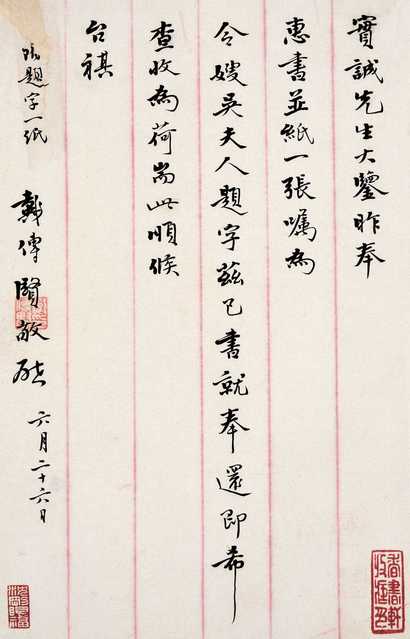 實誠先生大鑒昨奉
惠書並紙一張囑為
令嫂吳夫人題字茲已書就奉還即希
查收為荷耑此順候
台祺
戴傳賢敬啟 六月二十六日
附題字一紙